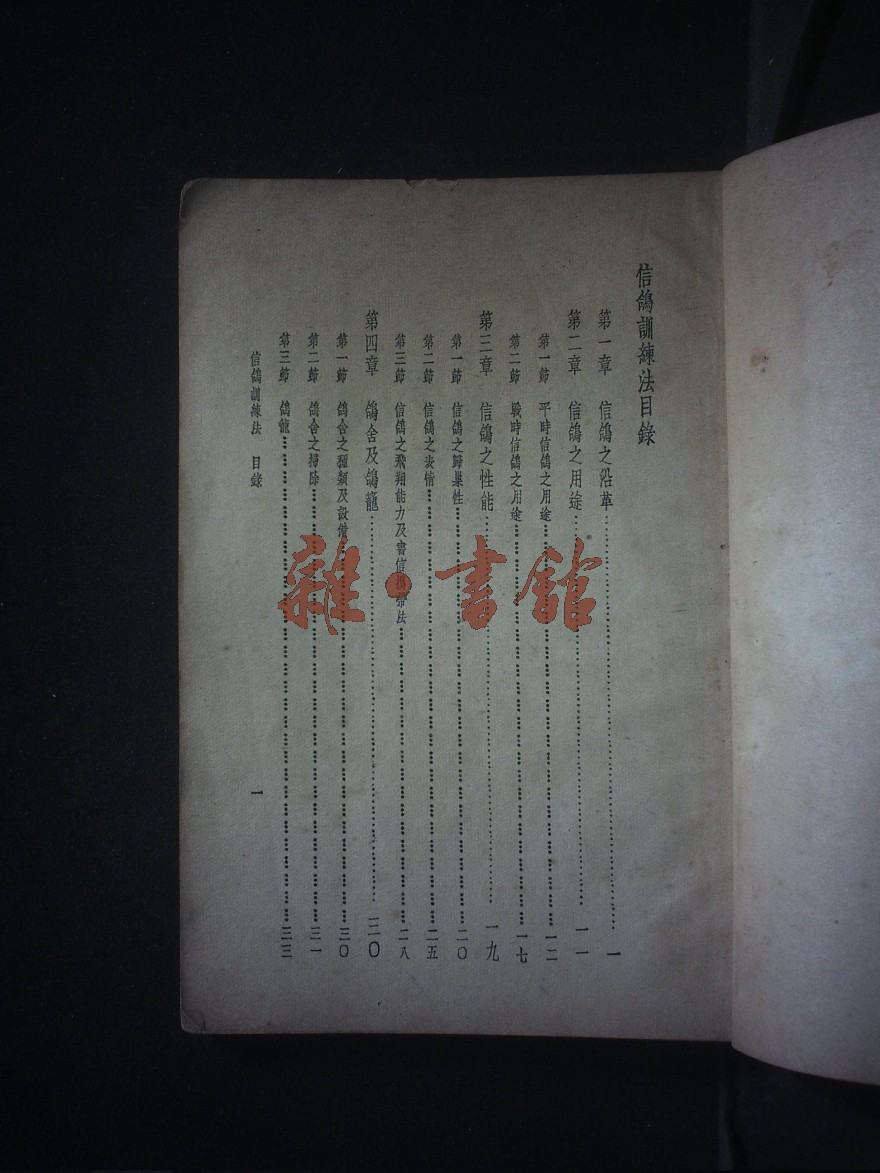 信鴿訓練法目錄
第一章 信鴿之沿革……一
第二章 信鴿之用途……一一
第一節 平時信鴿之用途……一二
第二節 戰時信鴿之用途……一七
第三章 信鴿之性能……一九
第一節 信鴿之歸巢性……二〇
第二節 信鴿之表情……二五
第三節 信鴿之飛翔能力及書信攜帶法……二八
第四章 鴿舍及鴿籠……三〇
第一節 鴿舍之種類及設備……三〇
第二節 鴿舍之掃除……三一
第三節 鴿籠……三三
信鴿訓練法 目錄 一
雜·書館